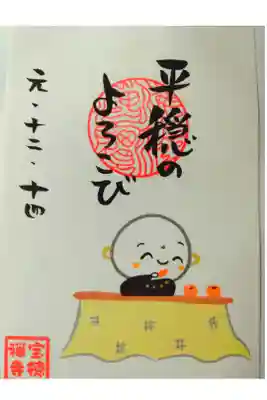 平穏の
よろこび
元・十二・十四
宝徳
禅寺